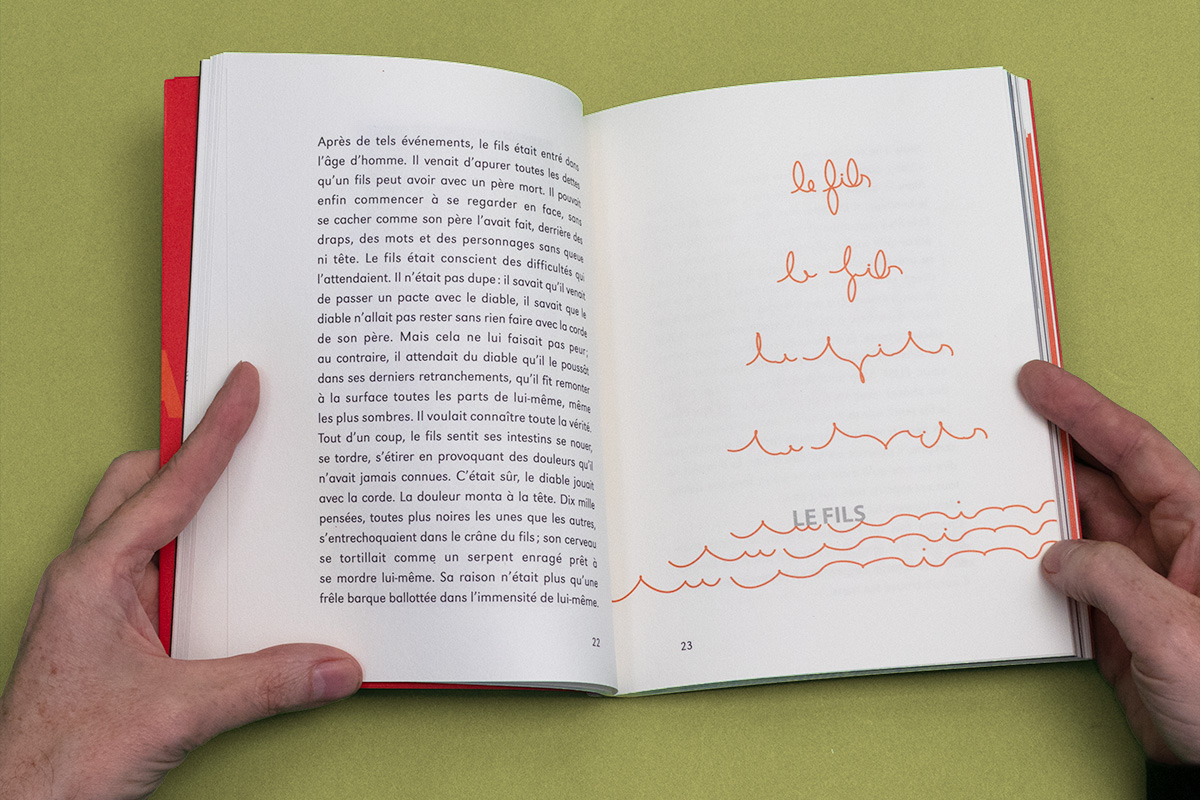 Après de tels événements, le fils était entré dans
l’âge d’homme. Il venait d’apurer toutes les dettes
qu’un fils peut avoir avec un père mort. Il pouvait
enfin commencer à se regarder en face, sans
se cacher comme son père l’avait fait, derrière des
draps, des mots et des personnages sans queue
ni tête. Le fils était conscient des difficultés qui
l’attendaient. Il n’était pas dupe : il savait qu’il venait
de passer un pacte avec le diable, il savait que le
diable n’allait pas rester sans rien faire avec la corde
de son père. Mais cela ne lui faisait pas peur ;
au contraire, il attendait du diable qu’il le poussât
dans ses derniers retranchements, qu’il fît remonter
à la surface toutes les parts de lui-même, même
les plus sombres. Il voulait connaître toute la vérité.
Tout d’un coup, le fils sentit ses intestins se nouer,
se tordre, s’étirer en provoquant des douleurs qu’il
n’avait jamais connues. C’était sûr, le diable jouait
avec la corde. La douleur monta à la tête. Dix mille
pensées, toutes plus noires les unes que les autres,
s’entrechoquaient dans le crâne du fils ; son cerveau
se tortillait comme un serpent enragé prêt à
se mordre lui-même. Sa raison n’était plus qu’une
frêle barque ballottée dans l’immensité de lui-même.
22
le fils
le fils
le fils
le fils
LE FILS
23